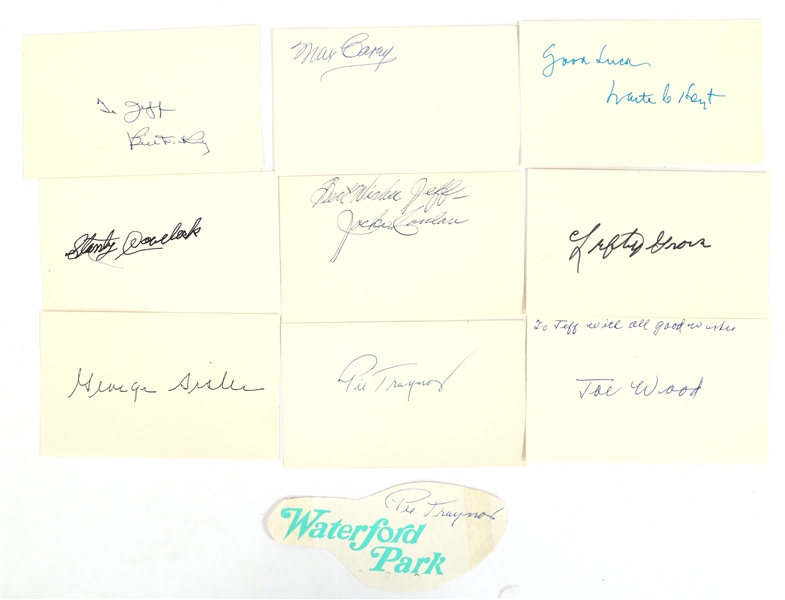 To Jeff
Bill Dickey
Max Carey
Good Luck
Waite C Hoyt
Stanley Coveleski
Best Wishes Jeff-
Jocko Conlan
Lefty Grove
George Sisler
Pie Traynor
To Jeff with all good wishes
Joe Wood
Pie Traynor
Waterford
Park